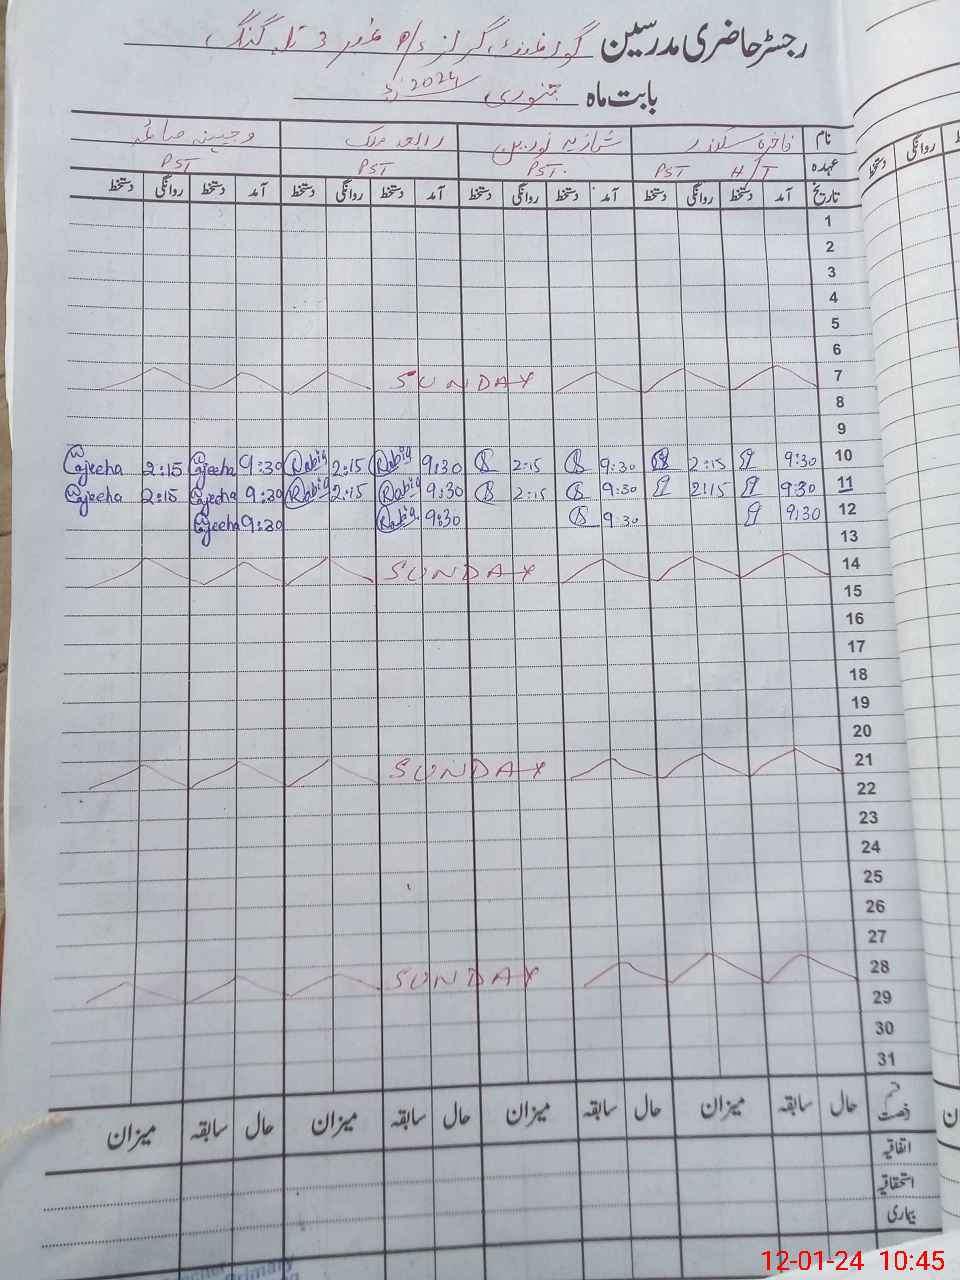 رجسٹر حاضری مدرسین گورنمنٹ گرلز
بابت ماہ جنوری 2024ء
نام فاخرہ سکندر شازیہ نورین رابعہ ملک وجیہہ صائمہ
عہدہ H/T PST PST. PST PST
تاریخ آمد دستخط روانگی دستخط آمد دستخط روانگی دستخط آمد دستخط روانگی دستخط آمد دستخط روانگی دستخط
روانگی دستخط
1
2
3
4
5
6
7 SUNDAY
8
9
10 9:30 2:15 9:30 2:15 9:30 Rabia 2:15 Rabia 9:30 Wajeeha 2:15 Wajeeha
11 9:30 2:15 9:30 2:15 9:30 Rabia 2:15 Rabia 9:30 Wajeeha 2:15 Wajeeha
12 9:30 9:30 9:30 Rabia 9:30 Wajeeha
13
14 SUNDAY
15
16
17
18
19
20
21 SUNDAY
22
23
24
25
26
27
28 SUNDAY
29
30
31
قسم رخصت حال سابقہ میزان حال سابقہ میزان حال سابقہ میزان حال سابقہ میزان
اتفاقیہ
استحقاقیہ
بیماری
Primary
12-01-24 10:45